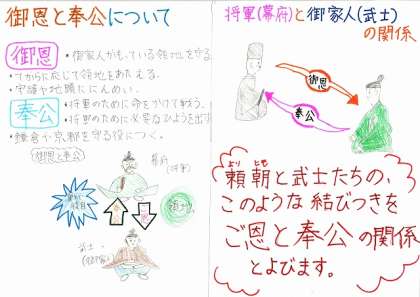 御恩と奉公について
御恩
・御家人がもっている領地を守る
・てがらに応じて領地をあたえる。
・守護や地頭ににんめい。
奉公
・将軍のために命をかけて戦う。
・将軍のために必要な
・鎌倉や京都を守る役につく。
御恩と奉公
幕府
(将軍)
領地
奉公
御恩
武士
(御家人)
将軍(幕府)と御家人(武士)
の関係
御恩
奉公
より とも
頼朝と武士たちの、
このような結びつきを
ご恩と奉公の関係
とよびます。